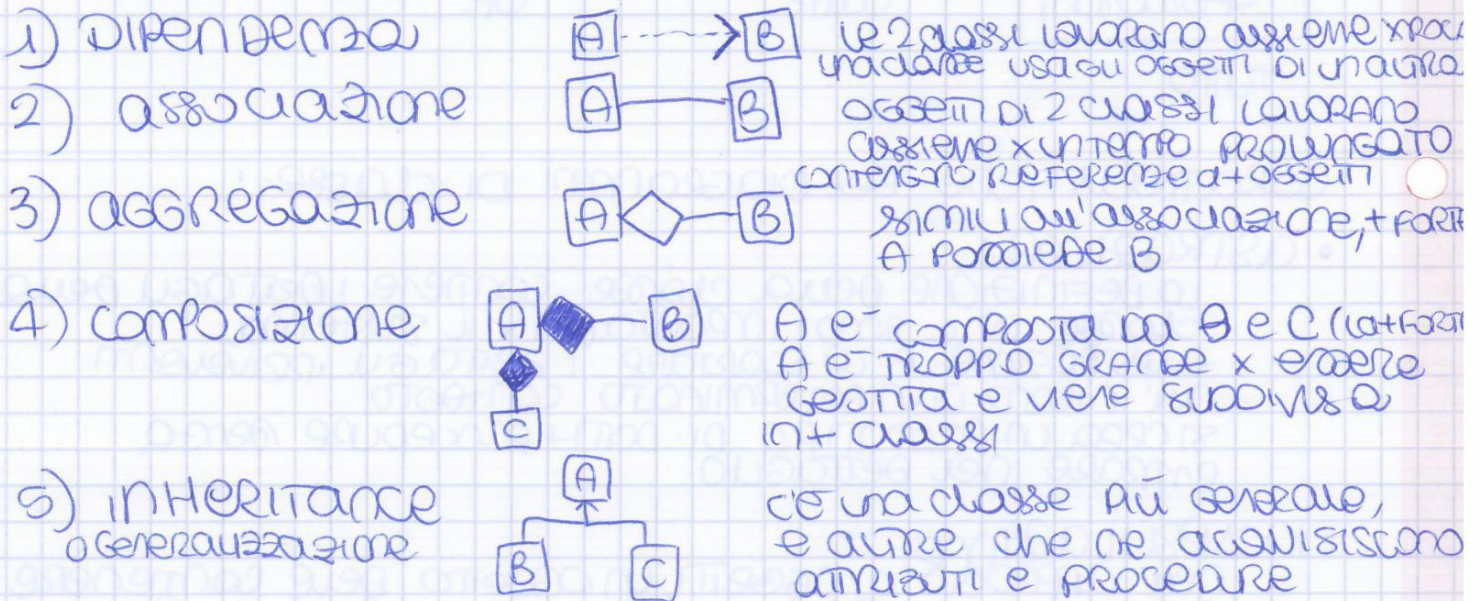 1) DIPENDENZA A B LE 2 CLASSI LAVORANO ASSIEME
UNA CLASSE USA GLI OGGETTI DI UN'ALTRA
2) ASSOCIAZIONE A B OGGETTI DI 2 CLASSI LAVORANO
ASSIEME X UN TEMPO PROLUNGATO
CONTENGONO REFERENZE a + OGGETTI
3) AGGREGAZIONE A B SIMILI ALL'ASSOCIAZIONE, + FORTE
A POSSIEDE B
4) COMPOSIZIONE A B A E' COMPOSTA DA B e C (LA + FORTE
A E' TROPPO GRANDE X ESSERE
C GESTITA E VIENE SUDDIVISA
IN + CLASSI
5) INHERITANCE A C'E UNA CLASSE PIÙ GENERALE,
O GENERALIZZAZIONE E ALTRE CHE NE ACQUISISCONO
B C ATTRIBUTI E PROCEDURE